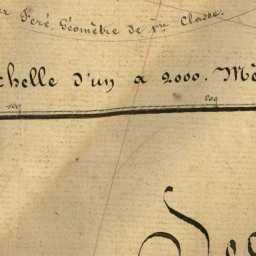 Péré, Géomètre de 1re Classe.
chelle d'un a 2000. Mè
200
De